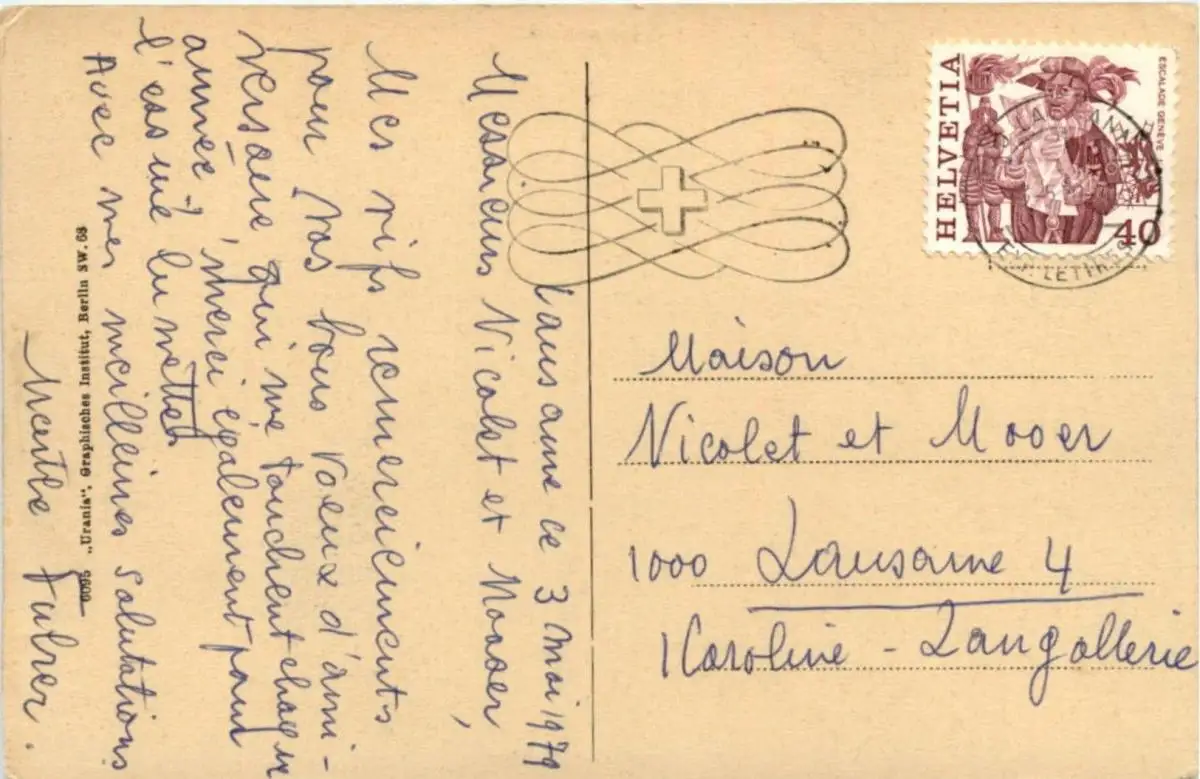 Lausanne ce 3 mai 1979
Messieurs Nicolet et Mooer,
Mes vifs remerciements
pour vos bons voeux d'anni-
versaire qui me touchent chaque
année, merci également pour
l'essuie lunettes
Avec mes meilleures salutations
Furrer.
6095 „Urania“, Graphisches Institut, Berlin SW. 68
HELVETIA
ESCALADE GENÈVE
40
LETTRES
Maison
Nicolet et Mooer
1000 Lausanne 4
1 Caroline - Langallerie